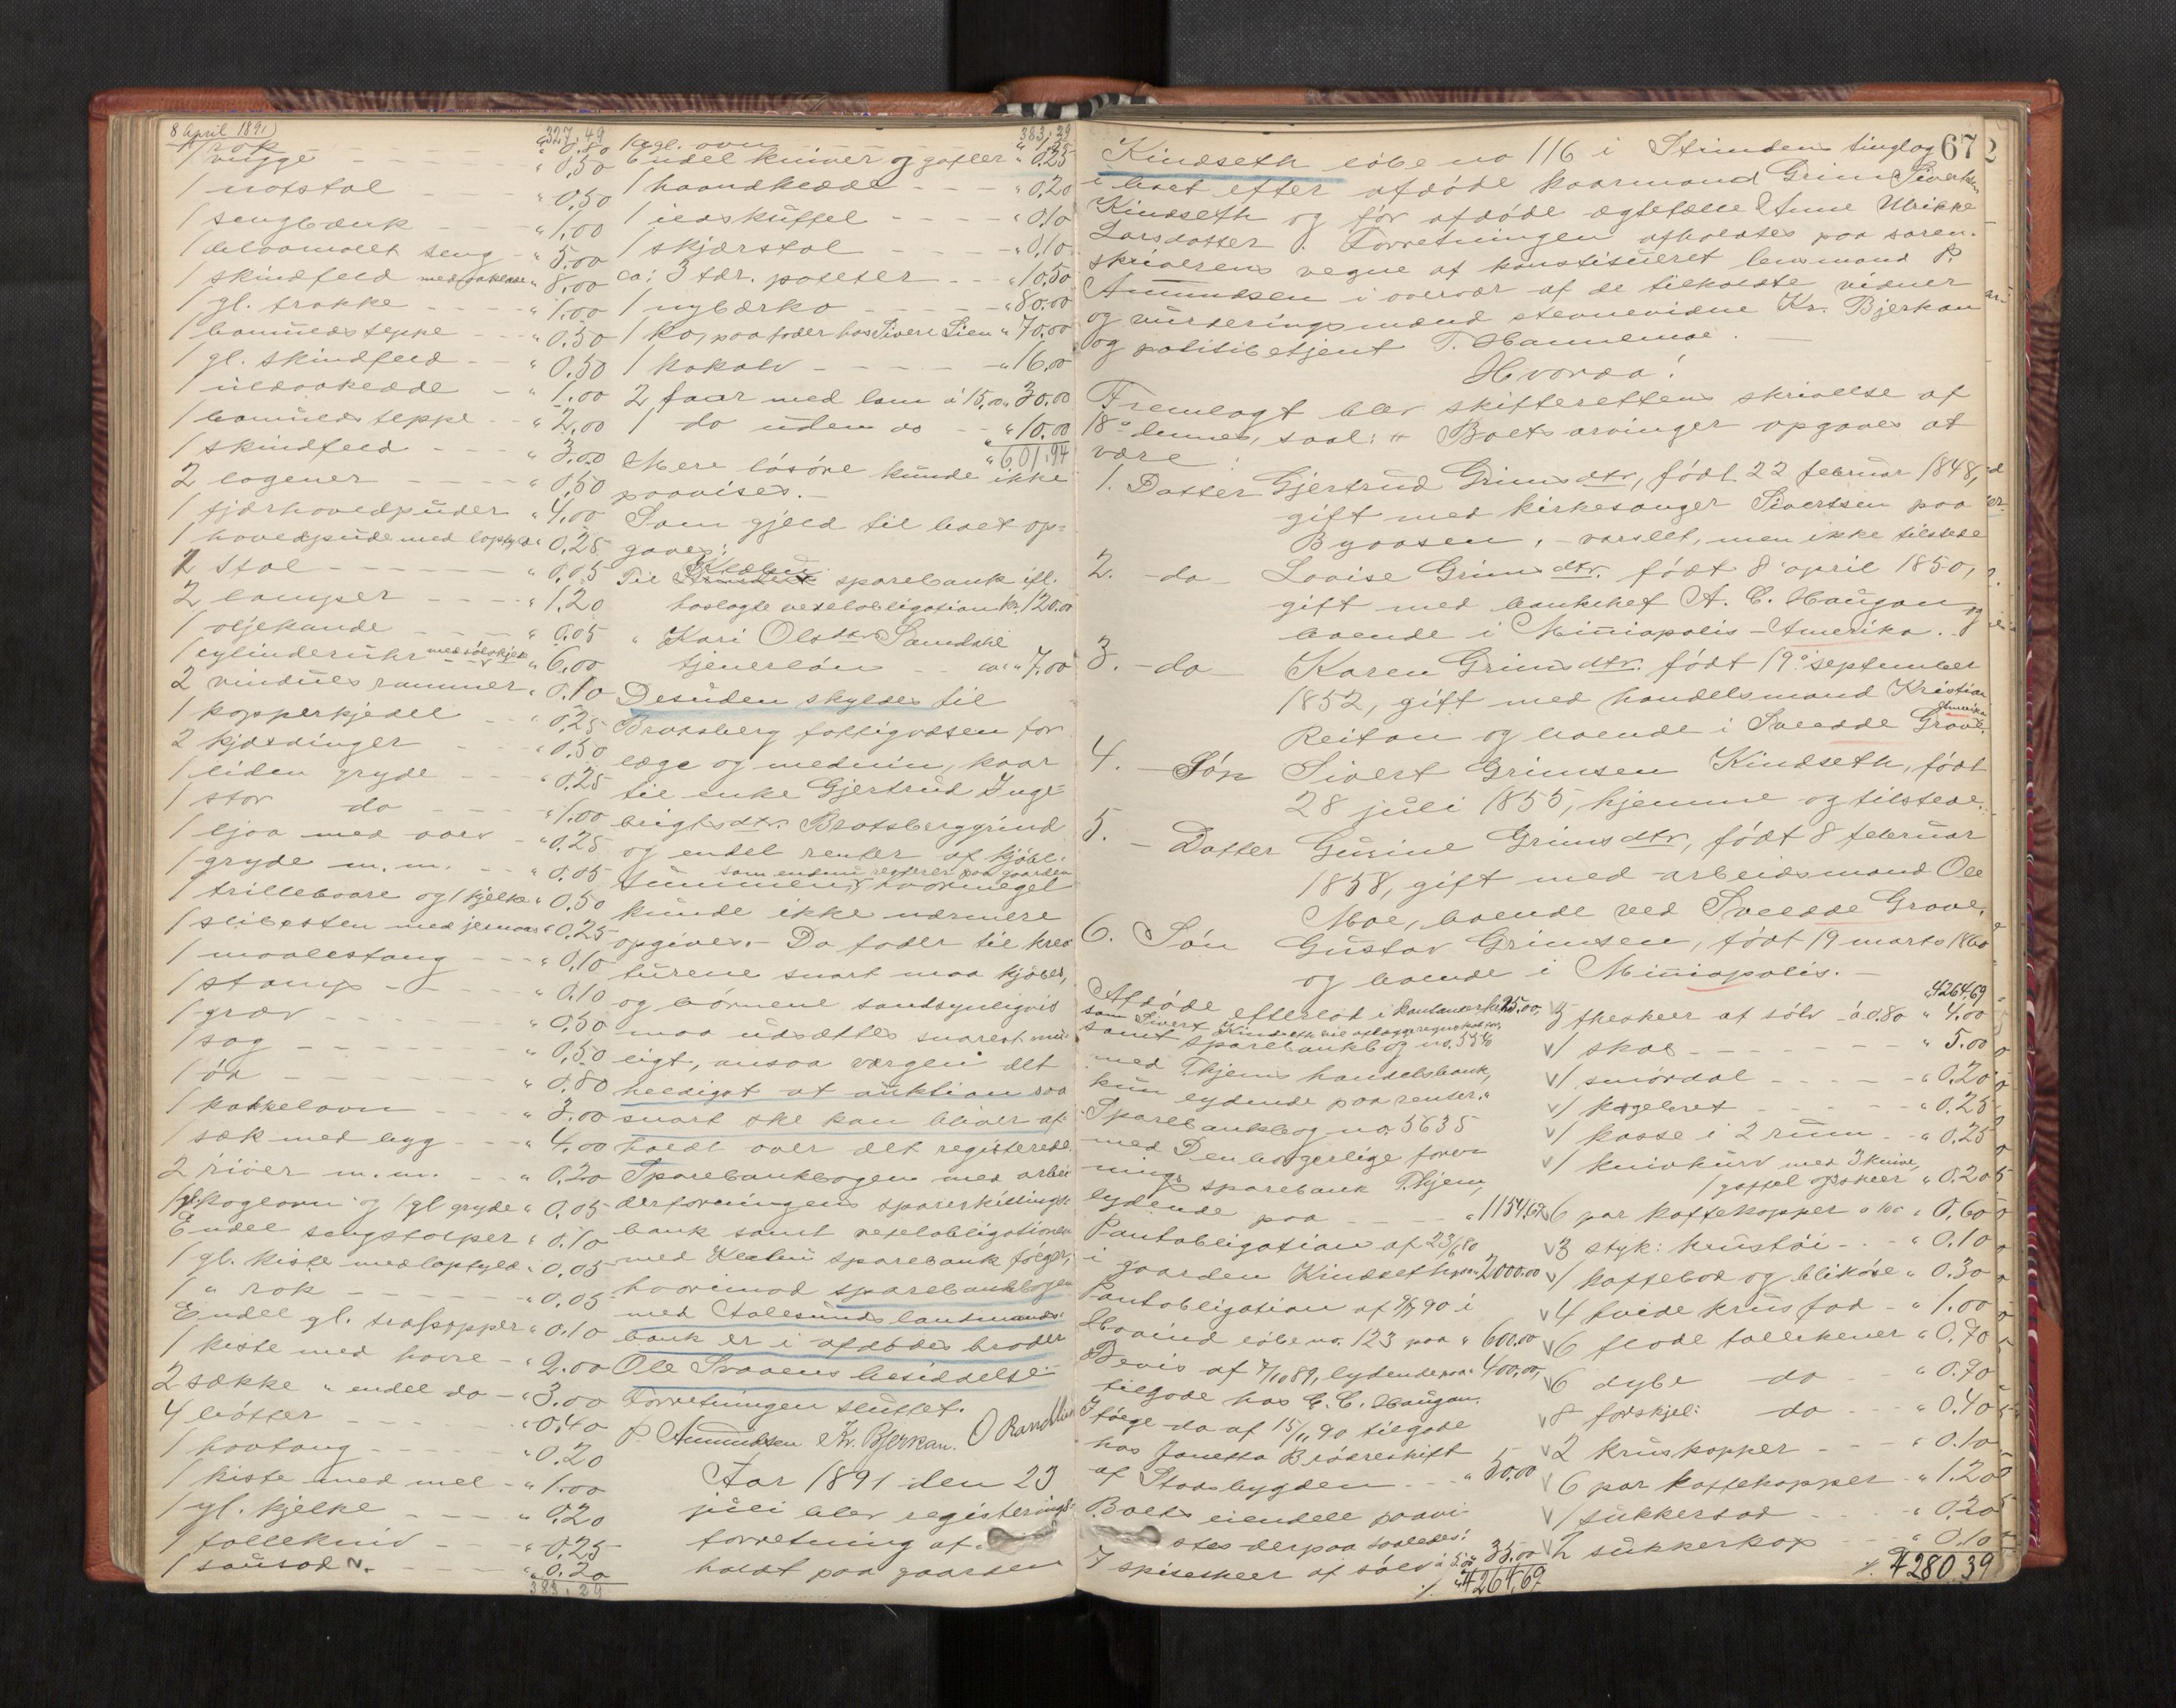 8 April 1891
327,49
1 rok " 0.80
1 vugge " 0.50
1 notstol " 0.50
1 sengbænk " 1.00
1 blaamalt seng " 5.00
1 skindfeld med " 8.00
1 gl. trokke " 1.00
1 bomuldsteppe " 0.50
1 gl. skindfeld " 0.50
1 uldaaklæde " 1.00
1 bomuldsteppe " 2.00
1 skindfeld " 3.00
2 lagener " 0.50
1 fjærhovedpuder " 4.00
1 hovedpude med lopfyld " 0.25
2 stol " 0.05
2 lamper " 1.20
1 oljekande " 0.05
1 cylinderuhr med sølvkjede " 6.00
2 vinduesrammer " 0.10
1 kopperkjedel " 0.25
2 kjærdinger " 0.50
1 liden gryde " 0.25
1 stor do " 1.00
1 ljaa med orv " 0.25
1 gryde m.m. " 0.05
1 trillebaare og 1 kjelke " 0.50
1 slibesten med jernaas " 0.25
1 maalestang " 0.10
1 stamp " 0.10
1 græv " 0.50
1 sag " 0.50
1 øx " 0.80
1 kakkelovn " 3.00
1 sæk med byg " 4.00
2 river m.m. " 0.20
1 gl. kogeovn og 1 gl gryde " 0.05
Endel sengstolper " 0.10
1 gl. kiste med lopfyld " 0.05
1 " rok " 0.05
Endel gl. træsopper " 0.10
1 kiste med havre " 2.00
2 sække " endel do " 3.00
4 bøtter " 0.40
1 hovtang " 0.20
1 kiste med mel " 1.00
1 gl. kjelke " 0.20
1 follekniv " 0.25
1 " 0.20
383.29
383.29
1 kogl. ovn
Endel kniver og gafler " 0.25
1 haandklæde " 0.20
1 ildskuffel " 0.10
1 skjærstol " 0.10
ca: 3 tdr. poteter " 10.50
1 nybærko " 80.00
1 ko, paa foder hos Sivert Lien " 70.00
1 kokalv " 16.00
2 faar med lam à 15,00 " 30.00
1 do uden do " 10.00
" 601.94
Mere løsøre kunde ikke
paavises.
Som gjeld til boet op=
gaves:
Til Klæbu sparebank ifl.
haslagte vexelobligation Kr. 120.00
" Kari Olsdtr. Samdahl
tjenerløn ca " 7.00
Desuden skyldes til
Bratsberg fattigvæsen for
læge og medicin, kaar
til enke Gjertrud Inge=
brigtsdtr. Bratsberggrind
og endel renter af kjøbe=
som endnu resterer paa gaarden
summen, hvormeget
kunde ikke nærmere
opgives. Da foder til krea
turene snart maa kjøbes,
og børnene sandsynligvis
maa udsættes snarest mu=
ligt, ansaa værgen det
heldigst at auktion saa
snart ske kan bliver af=
holdt over det registrerede.
Sparebankbogen med arbei
derforeningens spareskillings
bank samt vexelobligationen
med Klæbu sparebank følger,
hvorimod sparebankbogen
med Aalesunds landmands=
bank er i afdødes broder
Ole Svaaens besiddelse.
Forretningen sluttet.
P. Amundsen Kr. Bjerkan. O Randlien
Aar 1891 den 23
juli blev registrerings=
forretning af=
holdt paa gaarden
672
Kindseth løbe no 116 i Strinden tinglag
i boet efter afdøde kaarmand Grim Sivertsen
Kindseth og før afdøde ægtefælle Anne Ulrikke
Larsdatter. Forretningen afholdtes paa soren=
skriverens vegne af konstitueret lensmand P.
Amundsen i overvær af de tilkaldte vidner
og vurderingsmænd stevnevidne Kr. Bjerkan
og politibetjent T. Hammemoe.
Hvorda!
Fremlagt blev skifterettens skrivelse af
18de dennes, saal: " Boets arvinger opgaves at
være:
1. Datter Gjertrud Grimsdtr, født 22 februar 1848,
gift med kirkesanger Sivertsen paa
Byaasen, - varslet, men ikke tilstede
2. -do- Lovise Grimsdtr. født 8 april 1850,
gift med bankchef A. C. Haugan og
boende i Minniapolis-Amerika.
3. -do- Karen Grimsdtr. født 19de september
1852, gift med handelsmand Kristian
Reitan og boende i Swedde Grove. Amerika
4. - Søn Sivert Grimsen Kindseth, født
28 juli 1855, hjemme og tilstede.
5. - Datter Gusine Grimsdtr, født 8 februar
1858, gift med arbeidsmand Ole
Moe, boende ved Swedde Grove.
6. Søn Gustav Grimsen, født 19 marts 1860
og boende i Minniapolis.
Afdøde efterlod i kontanter kr. 25.00,
som Sivert Kindseth vil aflægge regnskab for,
samt sparebankbog no. 5546
med T.hjems handelsbank,
kun lydende paa renter.
Sparebankbog no. 5635
med Den borgerlige foren
nings sparebank T.hjem,
lydende paa " 1154.69
Pantobligation af 23/6 80
i gaarden Kindseth paa 2000.00
Pantobligation af 9/7 90 i
Hovind løbe no. 123 paa " 600.00
Bevis af 7/10 89, lydende paa " 400,00,
tilgode hos E. C. Haugan.
Ifølge do af 15/11 90 tilgode
hos Janetta Brødreskift
af Stadsbygden " 50.00
Boets eiendele paavi=
stes derpaa saaledes:
7 spiseskeer af sølv à 5.00 " 35.00
" 4264,69
4264,69
5 theskeer af sølv à 0.80 " 4.00
1 skab " 5.00
1 smørdal " 0.20
1 kagebret " 0.25
1 kasse i 2 rum " 0.25
1 knivkurv med 3 knive,
1 gaffel og skeer " 0.20
6 par kaffekopper à 10 " 0.60
3 styk: krustøi " 0.10
1 kaffebod og blikøse " 0.30
4 hvide krusfad " 1.00
6 flade tallerkener " 0.70
6 dybe do " 0.70
8 forskjel: do " 0.40
2 kruskopper " 0.10
6 par kaffekopper " 1.20
1 sukkerfad " 0.20
2 sukkerkop " 0.10
4280 39